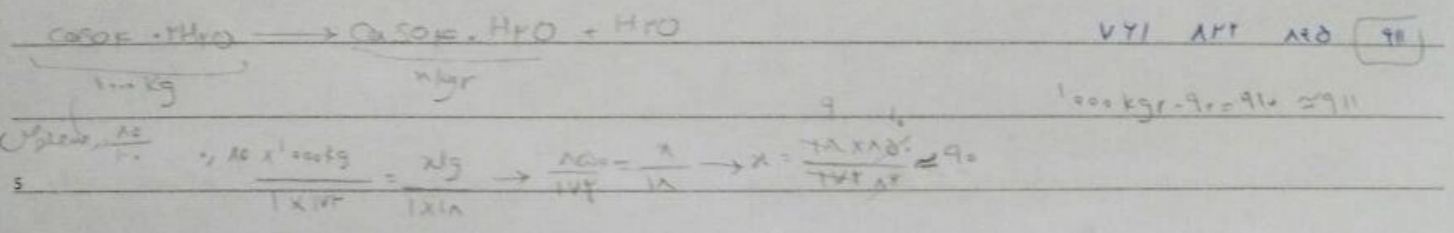 CaSO۴ . ۲H۲O → CaSO۴ . H۲O + H۲O ۷۶۱ ۸۲۲ ۸۹۵ ۹۱۱
۱۰۰۰ kg x kgr
۱۰۰۰ kgr - ۹۰ = ۹۱۰ ≈ ۹۱۱
خلوص ۸۵/۱۰۰
۰,۸۵ x ۱۰۰۰kg / ۱ x ۱۷۲ = x kg / ۱ x ۱۸ → ۸۵۰ / ۱۷۲ = x / ۱۸ → x = ۱۸ x ۸۵۰ / ۱۷۲ ≈ ۹۰
5